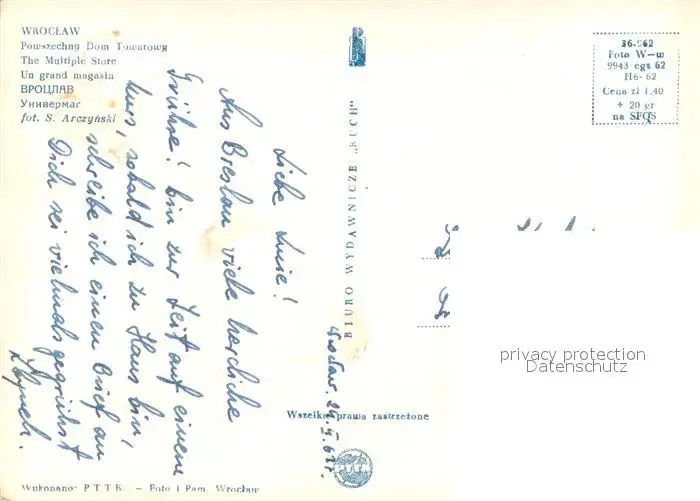 WROCŁAW
Powszechny Dom Towarowy
The Multiple Store
Un grand magasin
ВРОЦЛАВ
Универмаг
fot. S. Arczyński
Liebe Luise!
Aus Breslau viele herzliche
Grüsse! bin zur Zeit auf einem
kurs, sobald ich zu Haus bin,
schreibe ich einen Brief an
Dich sei vielmals gegrüsst
BIURO WYDAWNICZE „RUCH"
Foto W-w
9943 egz 62
H6-62
Cena zł 1,40
+ 20 gr
na SFOS
privacy protection
Datenschutz
Wszelkie prawa zastrzeżone
PTTK
Wykonano: PTTK — Foto i Pam. Wrocław